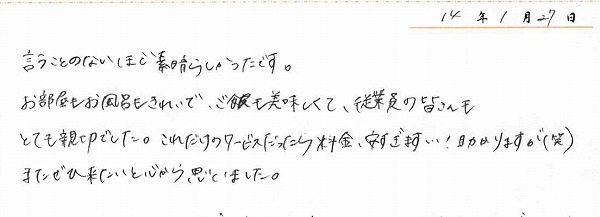 14年1月27日
言うことのないほど素晴らしかったです。
お部屋もお風呂もきれいで、ご飯も美味しくて、従業員の皆さんも
とても親切でした。これだけのサービスだったら料金、安すぎますい!助かりますが(笑)
またぜひ来たいと心から思いました。